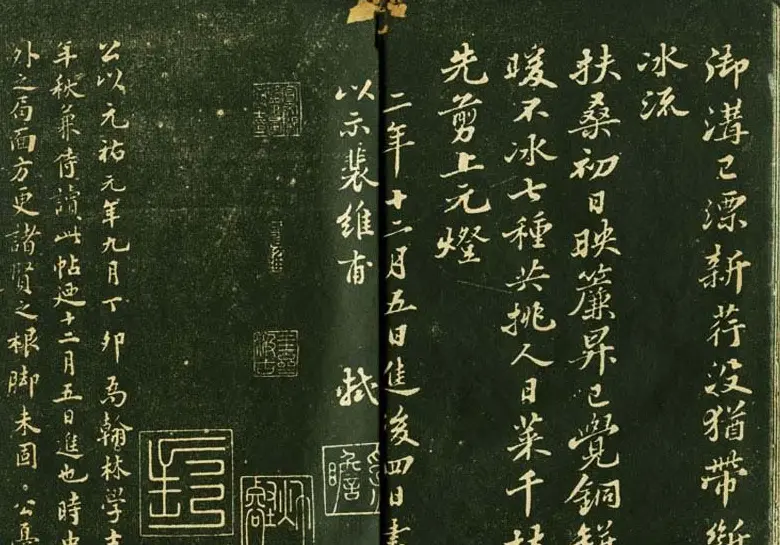 御溝已漂新荇没猶帶斷
冰流
扶桑初日映簾昇已覺銅缾
暖不冰七種共挑人日菜千枝
先剪上元燈
二年十二月五日進後四日書
以示裴維甫 軾
公以元祐元年九月丁卯為翰林學士
年秋兼侍讀此帖迺十二月五日進也時
外之局面方更諸賢之根脚未固。公